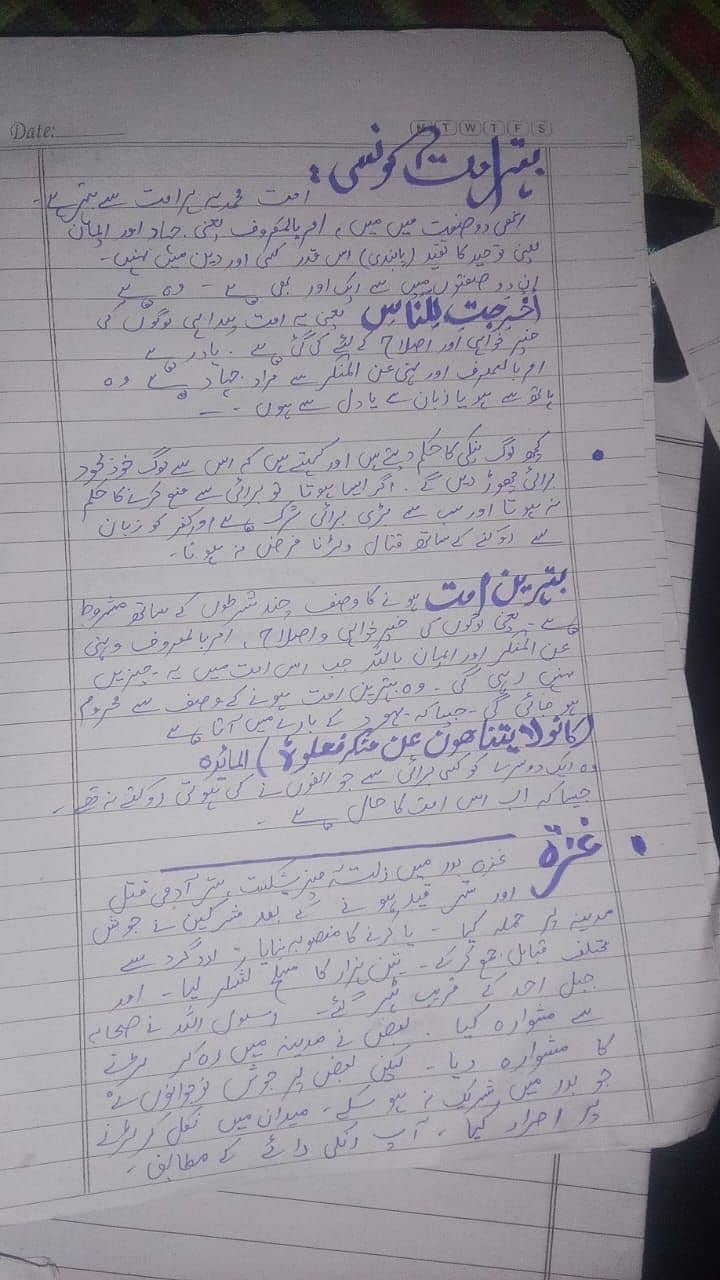 Date:
M T W T F S
بہتر امت کونسی :
امت محمدیہ ہر امت سے بہتر ہے۔
اسکی دو صفت میں میں ، امر بالمعروف یعنی جہاد اور ایمان
یعنی توحید کا تقید (پابندی) اس قدر کسی اور دین میں نہیں۔
ان دو صفتوں میں سے ایک اور بھی ہے ۔ وہ ہے
اُخْرِجَت لِلنَّاسِ یعنی یہ امت پیدا ہی لوگوں کی
خیر خواہی اور اصلاح کے لیئے کی گئی ہے ۔ یاد رہے
امر بالمعروف اور نہی عن المنکر سے مراد جہاد ہے وہ
ہاتھ سے ہو یا زبان سے یا دل سے ہوں ۔
کچھ لوگ نیکی کا حکم دیتے ہیں اور کہتے ہیں کہ اس سے لوگ خود بخود
برائی چھوڑ دیں گے ۔ اگر ایسا ہوتا تو برائی سے منع کرنے کا حکم
نہ ہوتا اور سب سے بڑی برائی شرک ہے اور کفر کو زبان
سے روکنے کے ساتھ قتال ولڑنا فرض نہ ہوتا۔
بہترین امت ہونے کا وصف چند شرطوں کے ساتھ مشروط
ہے ۔ یعنی لوگوں کی خیر خواہی و اصلاح ، امر بالمعروف و نہی
عن المنکر اور ایمان باللہ جب اس امت میں یہ چیزیں
نہیں رہیں گی ۔ وہ بہترین امت ہونے کے وصف سے محروم
ہو جائی گی ۔ جیسا کہ یہود کے بارے میں آتا ہے
(کانو لا یتناھون عن منکر فعلوہ) المائدہ
وہ ایک دوسرے کو کسی برائی سے جو انھوں نے کی ہوتی روکتے نہ تھے ۔
جیسا کہ اب اس امت کا حال ہے ۔
غزہ
غزہ بدر میں ذلت آمیز شکست ، ستر آدمی قتل
اور ستر قید ہونے کے بعد مشرکین نے جوش
مدینہ پر حملہ کیا ۔ یا کرنے کا منصوبہ بنایا ، اردگرد سے
مختلف قبائل جمع کرکے ۔ تین ہزار کا مسلح لشکر لیا ۔ اور
جبل احد کے قریب ٹہر گئے۔ رسول اللہ نے صحابہ
سے مشوارہ کیا ۔ بعض نے مدینہ میں رہ کر لڑنے
کا مشوارہ دیا ۔ لیکن بعض پر جوش نوجوانوں نے
جو بدر میں شریک نہ ہو سکے ۔ میدان میں نکل کر لڑنے
پر اصرار کیا ۔ آپ انکی رائے کے مطابق ۔